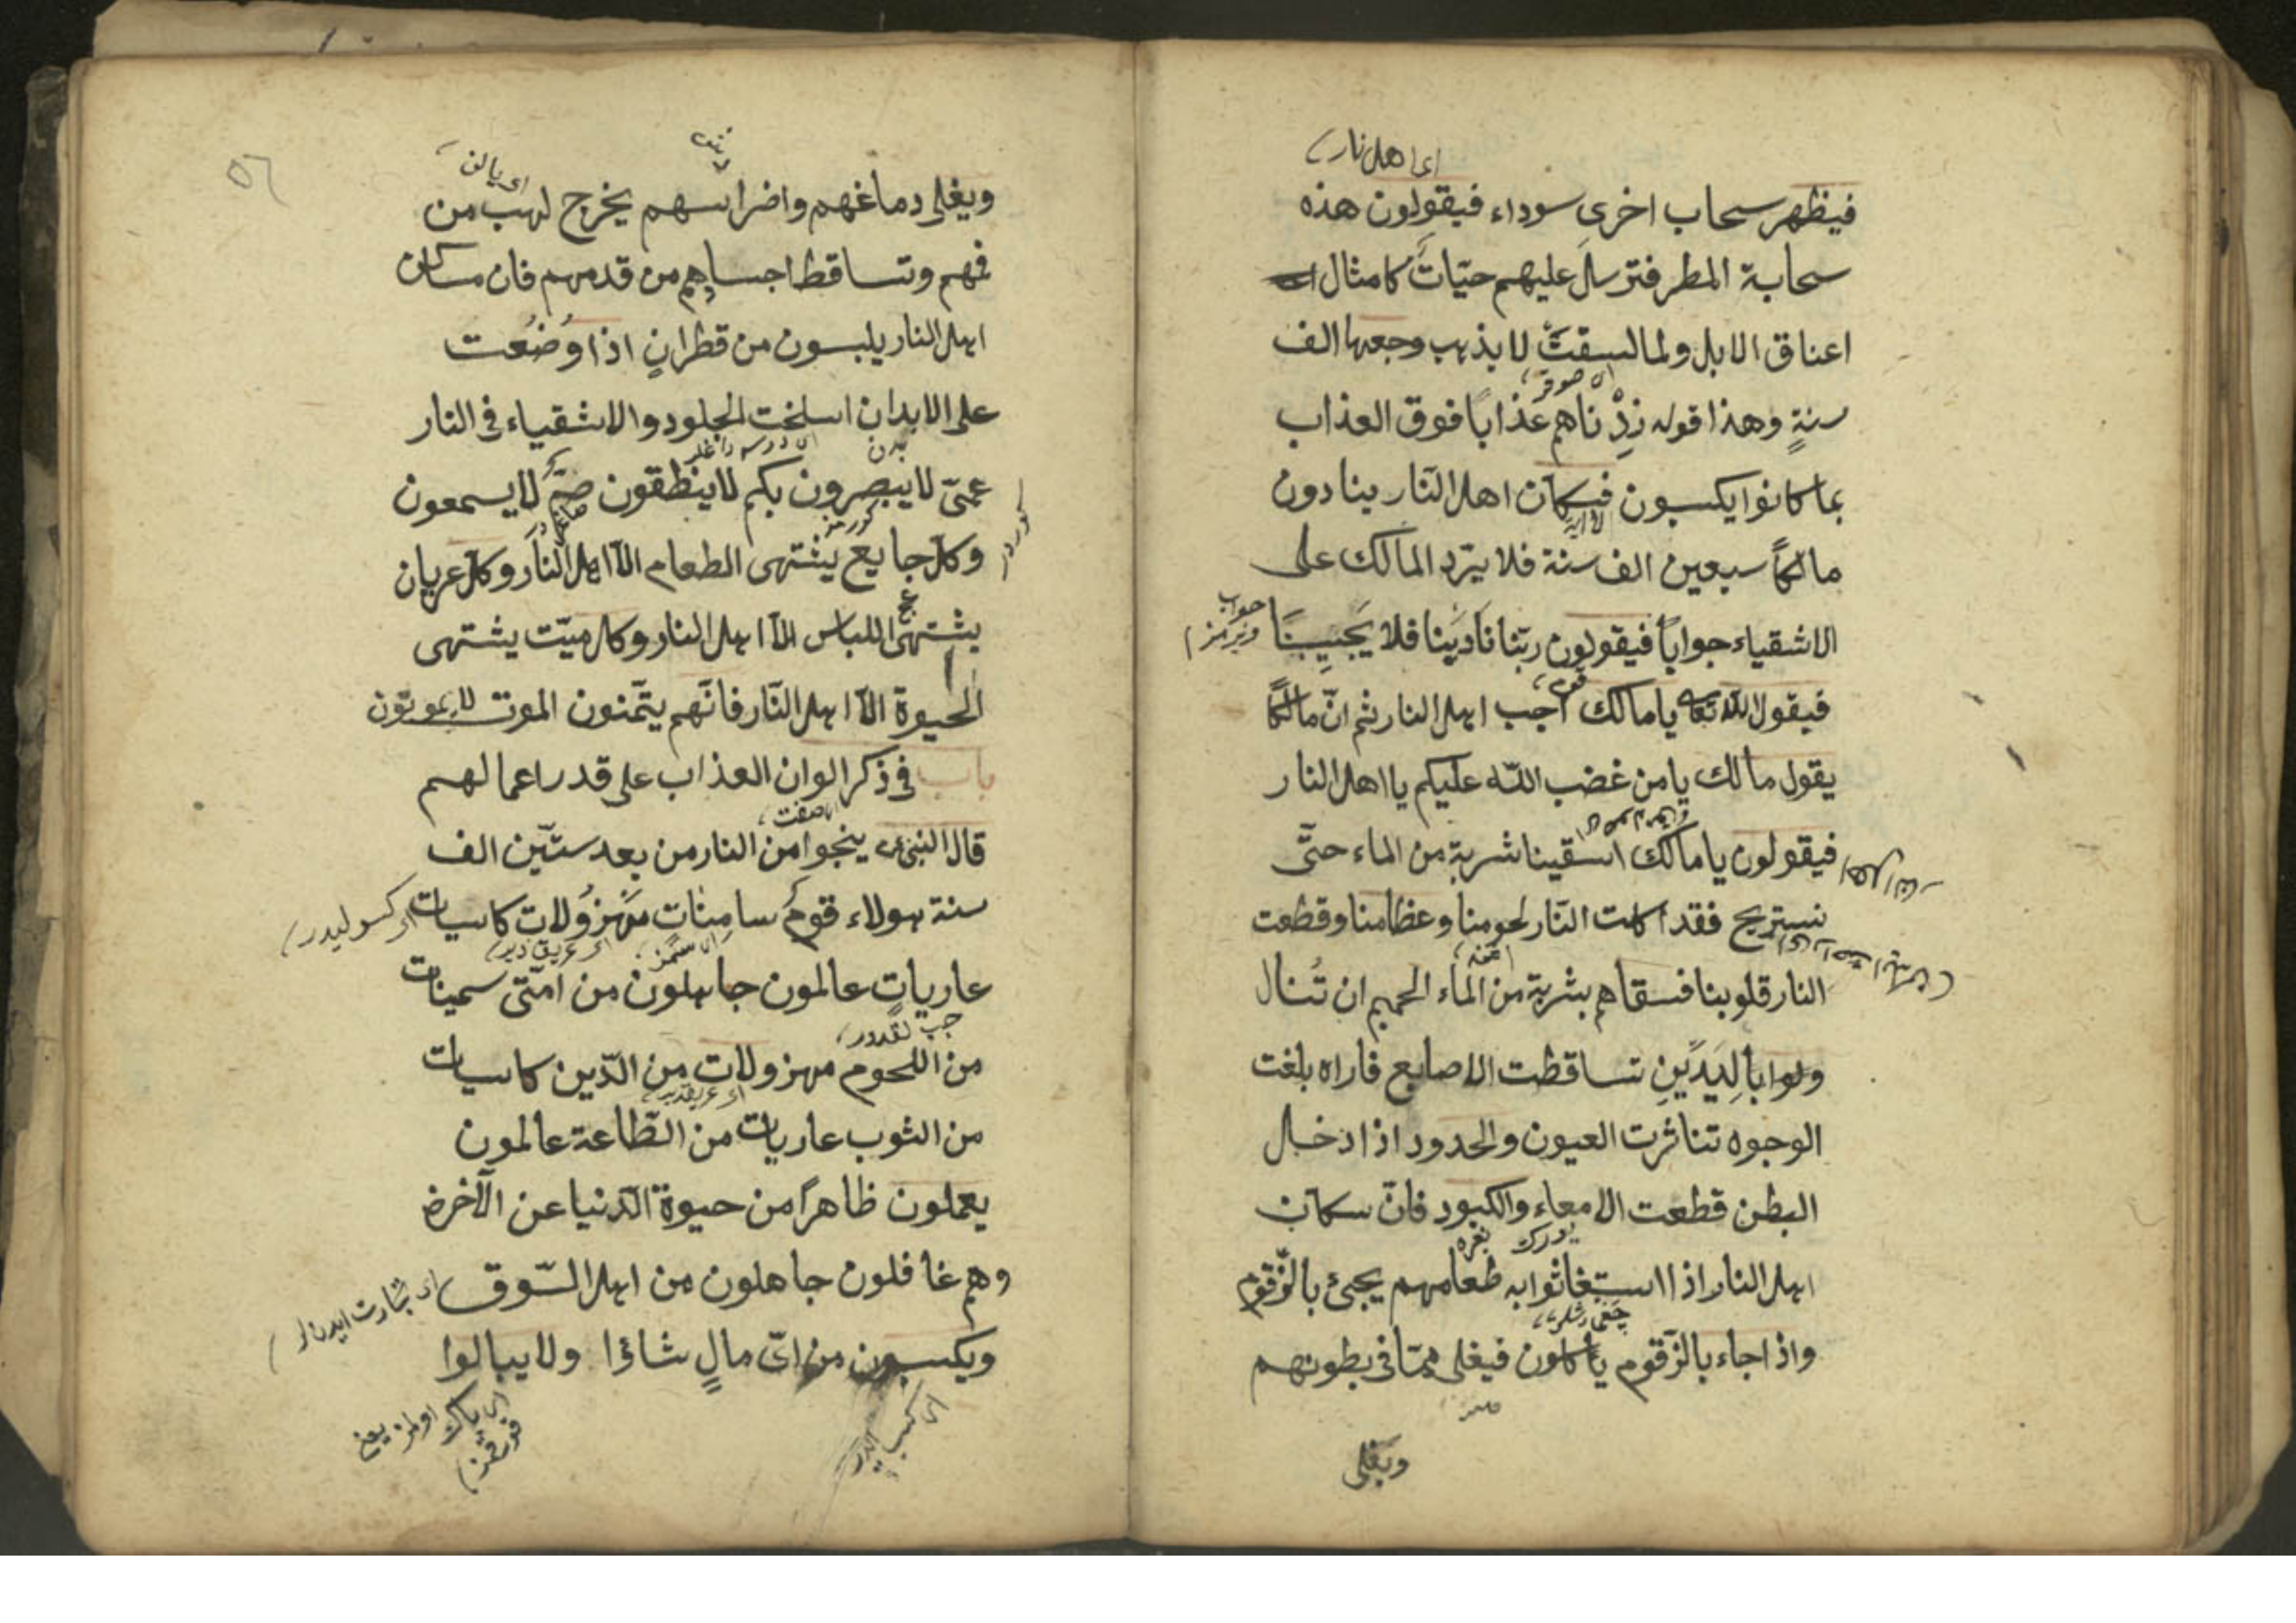 اى اهل نار
فيظهر سحاب اخرى سوداء فيقولون هذه
سحابة المطر فترسل عليهم حيّات كامثال
اعناق الابل ولما لسقت لا يذهب وجعها الف
سنةٍ وهذا قوله زِدْناهم عذابًا فوق العذاب
بما كانوا يكسبون فكان اهل النّار ينادون
مالكًا سبعين الف سنة فلا يردّ المالك على
الاشقياء جوابًا فيقولون ربّنا نادَينا فلا يَجيبِنَا
جواب ويرمز
فيقول اللّه تعالى يا مالك اجب اهل النار ثم انّ مالكًا
يقول مالك يا من غضب اللّه عليكم يا اهل النار
فيقولون يا مالك اسقينا شربة من الماء حتّى
اهل النار
نستريح فقد اكلت النّار لحومنا وعظامنا وقطعت
النار قلوبنا فسقاهم بشربة من الماء الحميم ان تُنال
ولوا بالِيَدَيْنِ تساقطت الاصابع فاراه بلغت
الوجوه تناثرت العيون والحدود اذا دخل
البطن قطعت الامعاء والكبود فانّ سكان
اهل النار اذا استغاثوا به طعامهم يجئ بالزّقّوم
واذا جاء بالزّقوم ياكلون فيغلى ممّا فى بطونهم
ويغلى
٥٦
ويغلى دماغهم واضراسهم يخرج لهب من
فهم وتساقط اجساهم من قدمهم فان مسكان
اهل النار يلبسون من قطرانٍ اذا وُضُعت
على الابدان اسلخت الجلود والاشقياء فى النار
عمىّ لا يبصرون بكم لا ينطقون صمّ لا يسمعون
وكل جايع يَشتهى الطعام الّا اهل النّار وكل عريان
يشتهى اللباس الّا اهل النار وكل ميّت يشتهى
الحيوة الّا اهل النّار فانّهم يتمّنون الموت لا يموتون
باب فى ذكر الوان العذاب على قدر اعمالهم
قال النبى ينجوا من النار من بعد ستّين الف
سنة هولاء قومٌ سامنات مهزولات كاسيات
عاريات عالمون جاهلون من امّتى سمينات
من اللحوم مهزولات من الدّين كاسيات
من الثوب عاريات من الطّاعة عالمون
يعملون ظاهرًا من حيوة الدّنيا عن الآخرة
وهم غافلون جاهلون من اهل السّوق
اى تجارت ايدنلر
ويكسبون من اىّ مالٍ شاؤا ولا يبالوا
اى كسب ايدر